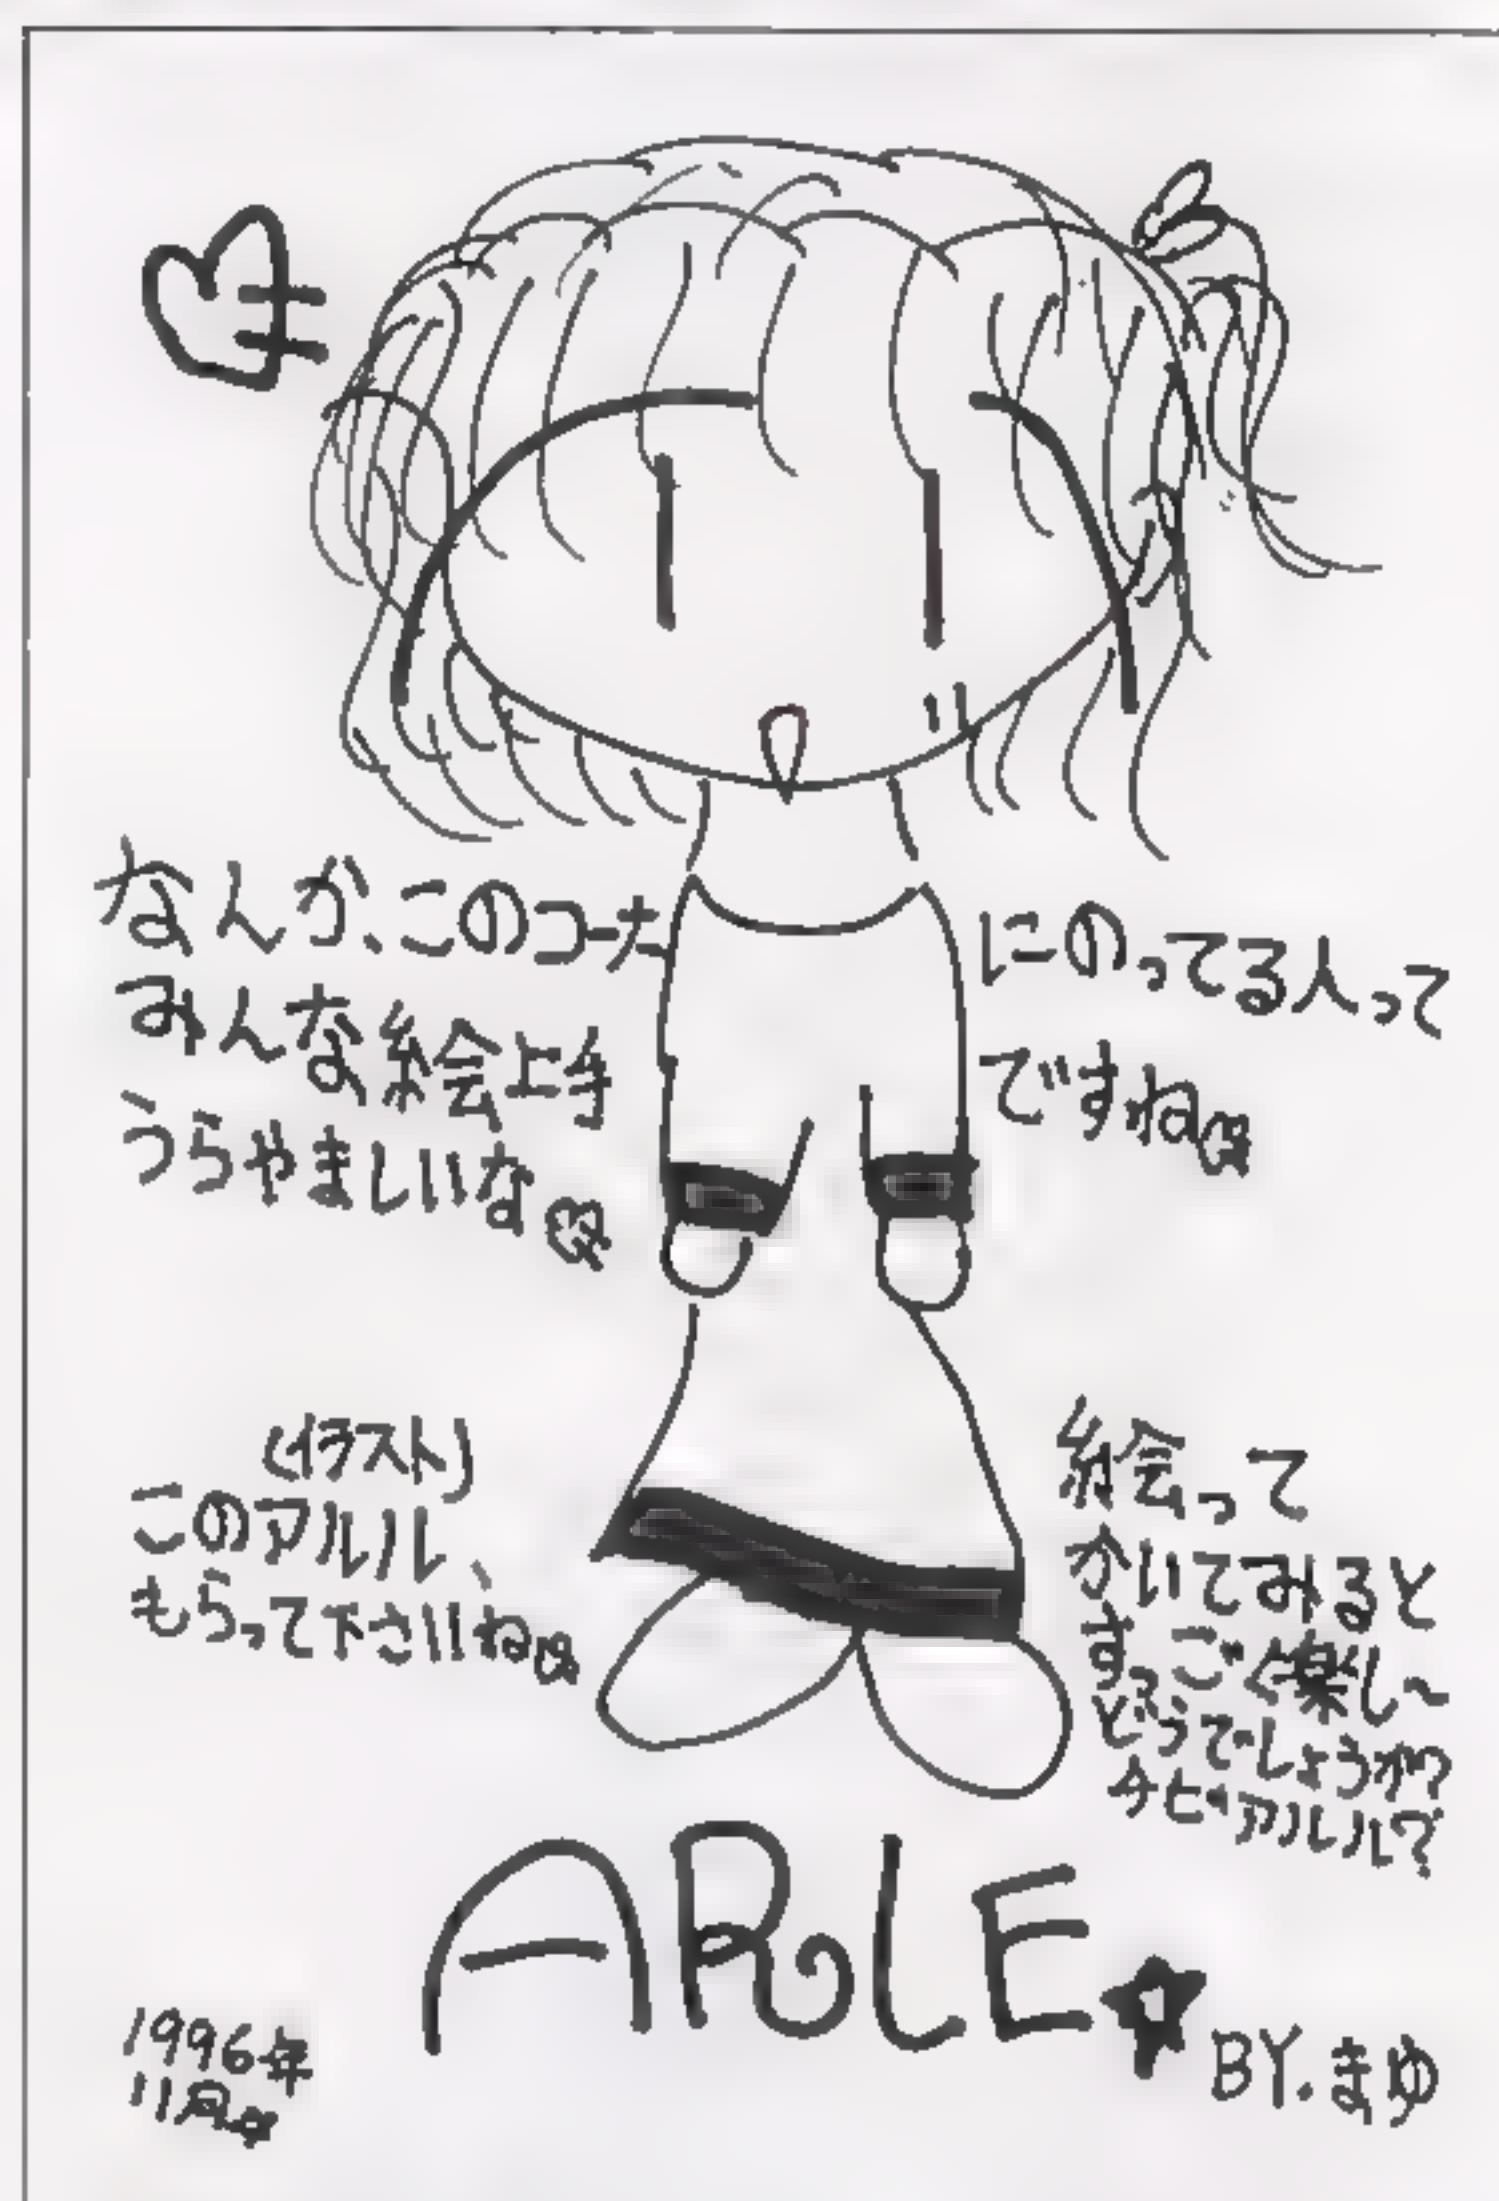 なんか、このコーナーにのってる人って
みんな絵上手ですね
うらやましいな
(イラスト)
このアルル、
もらって下さいね
絵って
かいてみると
すっごく楽し〜
どうでしょうか?
チビアルル?
ARLE
BY.まゆ
1996年
11月